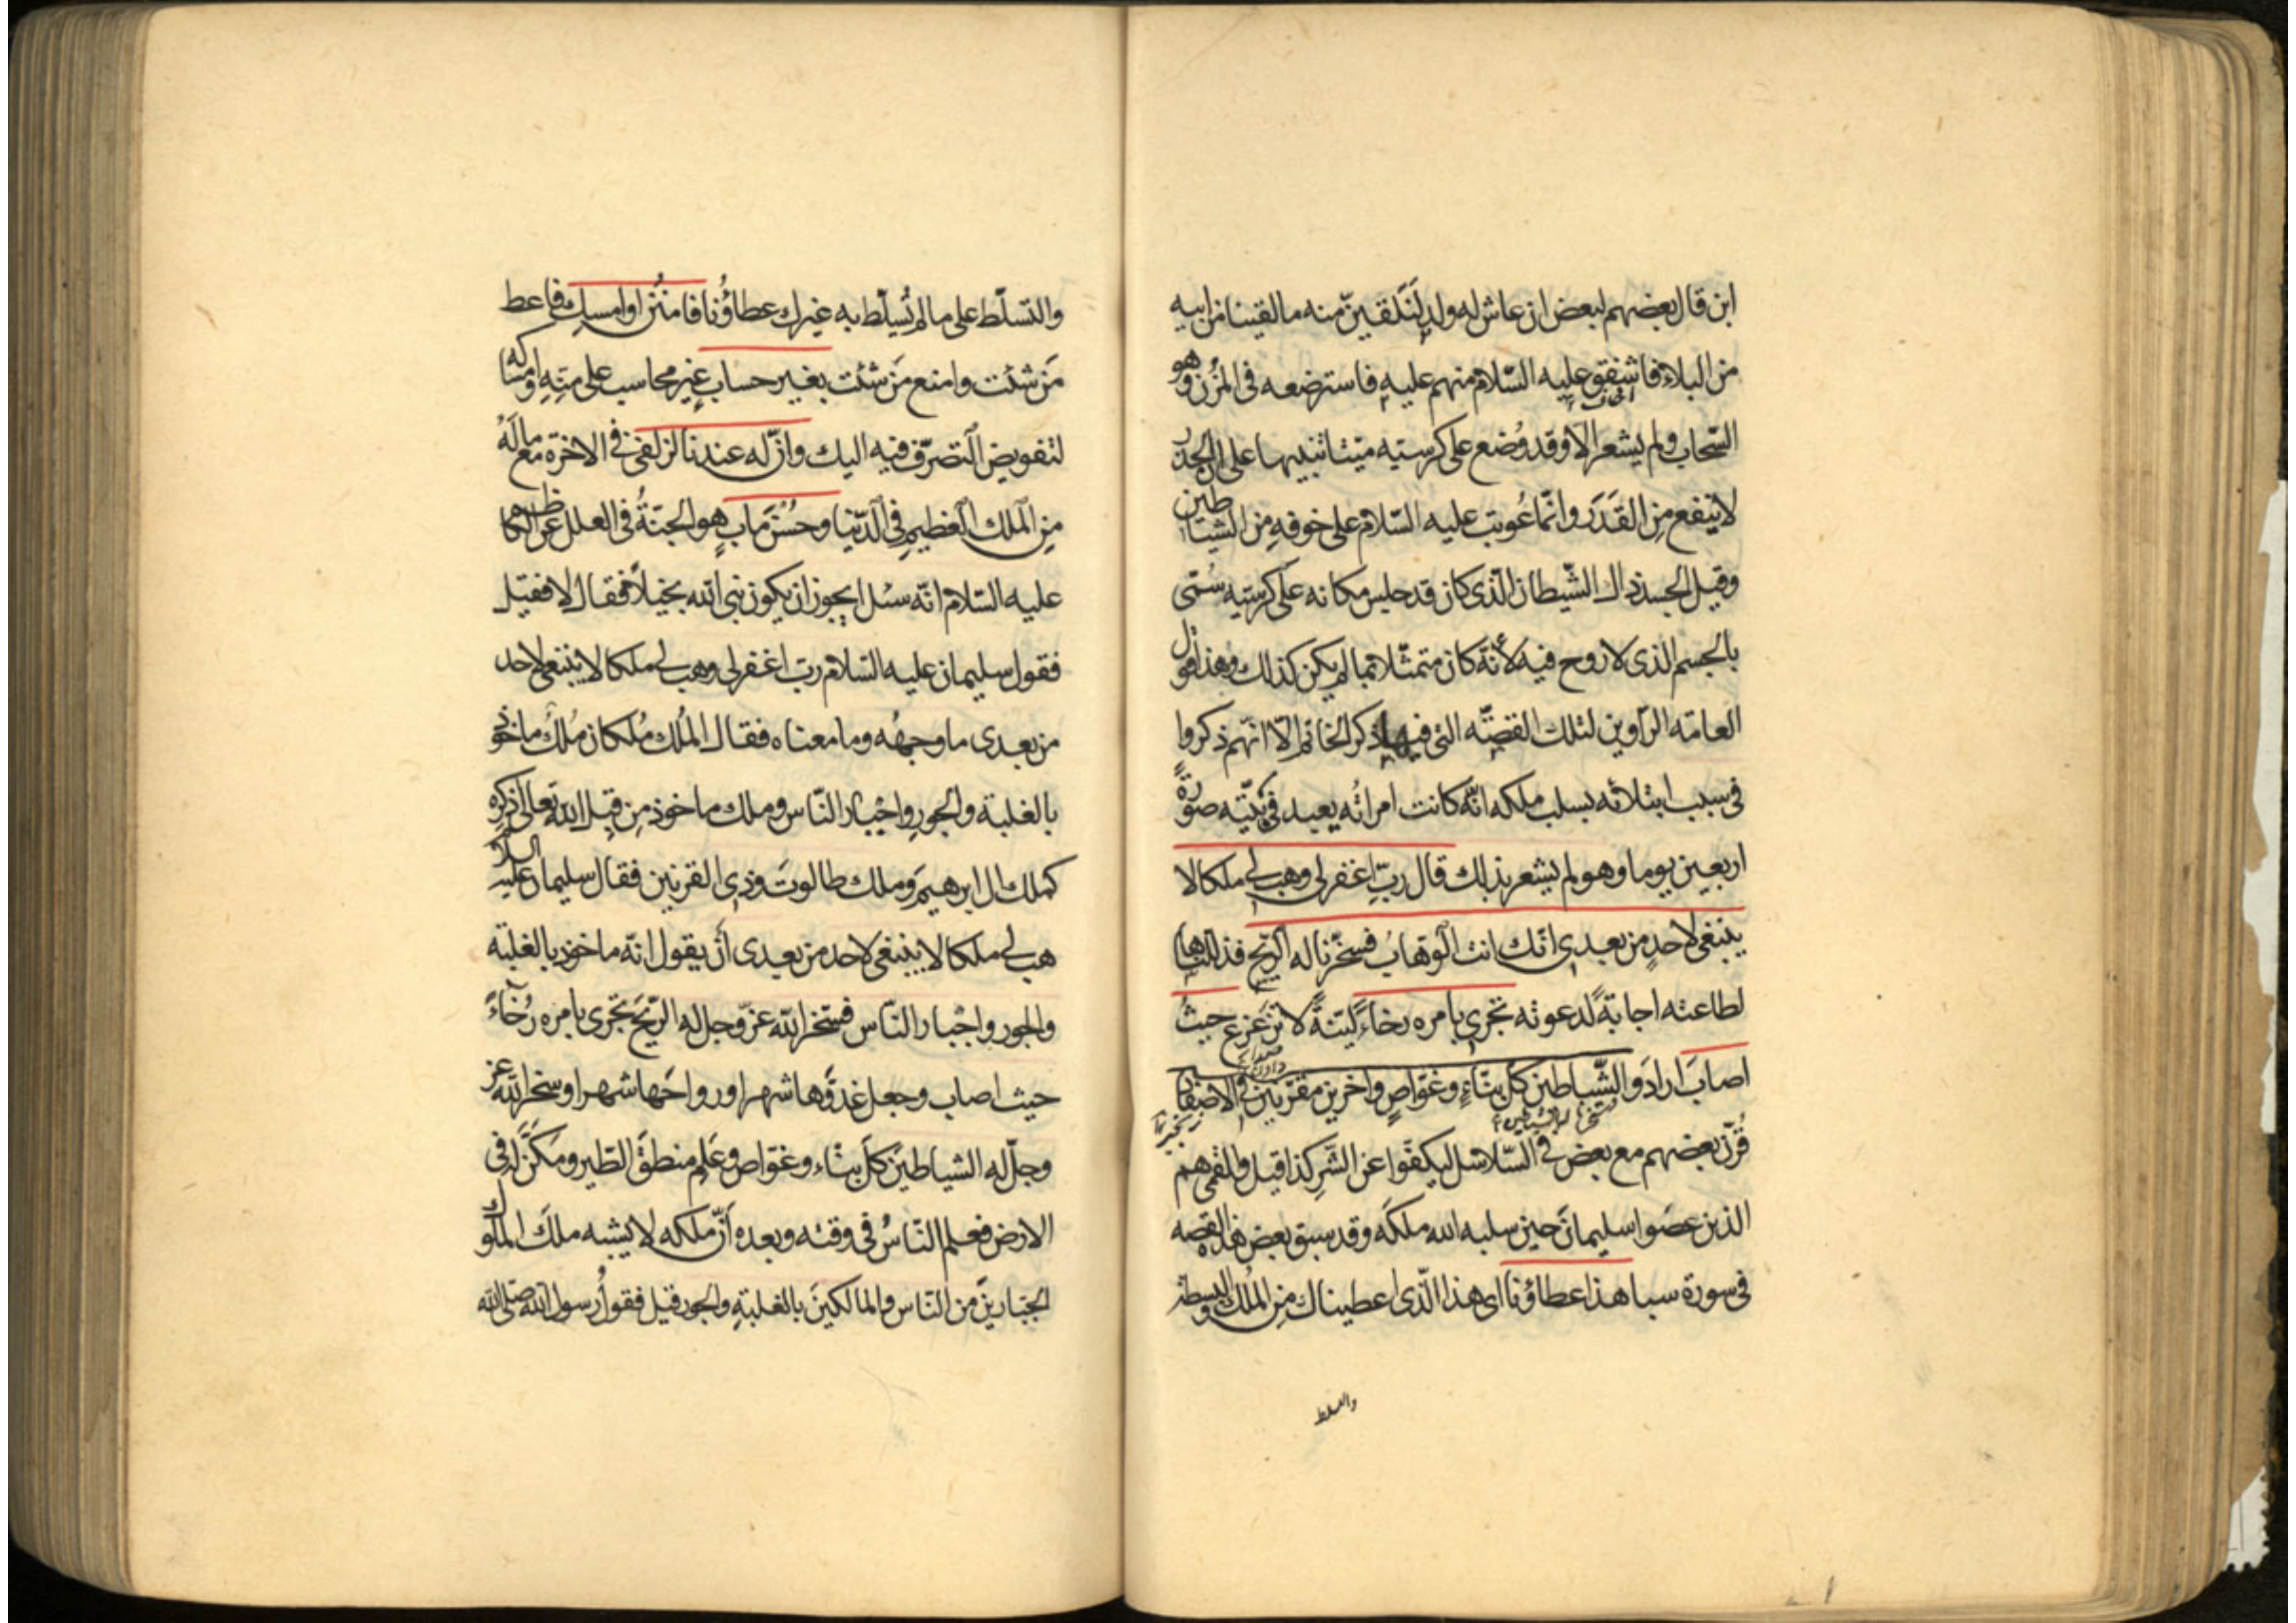 ابن قال بعضهم لبعض ان عاش له ولد لَنَلقينّ منه ما لقينا من ابيه
من البلاء فاشفق عليه السّلام منهم عليه فاسترضعه فى المُزن وهو
السّحاب ولم يشعر الّا وقد وُضع على كرسيّه ميتا تنبيها على انّ الحذر
لا ينفع مِن القَدَر وانّما عُوتب عليه السّلام على خوفه من الشياطين
وقيل الجسد ذاك الشّيطان الّذى كان قد جلس مكانه على كرسيّه سُمّى
بالجسم الذى لا روح فيه لأنّه كان متمثّلا بما لم يكن كذلك وهذا قول
العامّه الرّاوين لتلك القصّه التى فيها ذكر الخاتم الّا انّهم ذكروا
فى سبب ابتلائه بسلب ملكه انّه كانت امراتُه يعبد فى بيته صورةً
اربعين يوما وهو لم يشعر بذلك قال ربِّ اغفر لى وهب لى ملكا لا
ينبغى لاحدٍ من بعدى انّك انت الوهّابُ فسخّرنا له الرّيح فذللناها
لطاعته اجابةً لدعوته تجرى بامره رخاءً ليّنةً لا تزعزع حيثُ
اصابَ ارادَ والشّياطين كلّ بنّاءٍ وغوّاصٍ واخرين مقرّنين فى الاصفاد
قُرّن بعضهم مع بعض فى السّلاسل ليكفّوا عن الشّرِ كذا قيل والقمى هم
الذين عصَوا سليمانَ حين سلبه الله ملكَه وقد سبق بعض هذه القصه
فى سورة سبا هذا عطاؤنا اى هذا الّذى اعطيناك مِن المُلك والبسطة
والتسلط
والتّسلّط على ما لم يُسلّط به غيرك عطاؤُنا فامنُن او امسِك فاعط
مَن شئت وامنع مَن شئت بغير حساب غير محاسب على منّه وامساكه
لتفويض التصرّف فيه اليك وانّ له عندنا لزلفى فى الاخرة مع ما لَهُ
مِن الملك العظيمِ فى الدّنيا وحُسنَ ماب هو الجنّةُ فى العلل عن الكاظم
عليه السّلام انّه سئل ايجوز ان يكون نبى الله بخيلاً فقال لا فقيل
فقول سليمان عليه السّلام ربّ اغفر لى وهب لى ملكا لا ينبغى لاحد
من بعدى ما وجهُه وما معناه فقال المُلك مُلكان مُلكٌ ماخوذ
بالغلبة والجورِ واجبار النّاس وملك ماخوذ مِن قِبل الله تعالى ذكره
كملك ال ابرهيمَ وملك طالوتَ وذى القرنين فقال سليمان عليه السلام
هب لى ملكا لا ينبغى لاحد من بعدى أن يقول انّه ماخوذ بالغلبة
والجور واجبار النّاس فسخر الله عزّ وجل له الرّيحَ تجرى بامره رُخاءً
حيث اصاب وجعل غدوّها شهرا ورواحَها شهرا وسخر الله عز
وجلّ له الشياطينَ كلّ بنّاء وغوّاص وعَلم منطقَ الطّير ومكّنَ له فى
الارض فعلم النّاسُ فى وقته وبعده أنّ ملكه لا يشبه ملكَ الملوك
الجبّارينَ من النّاس والمالكينَ بالغلبةِ والجور قيل فقولُ رسول الله صلى الله